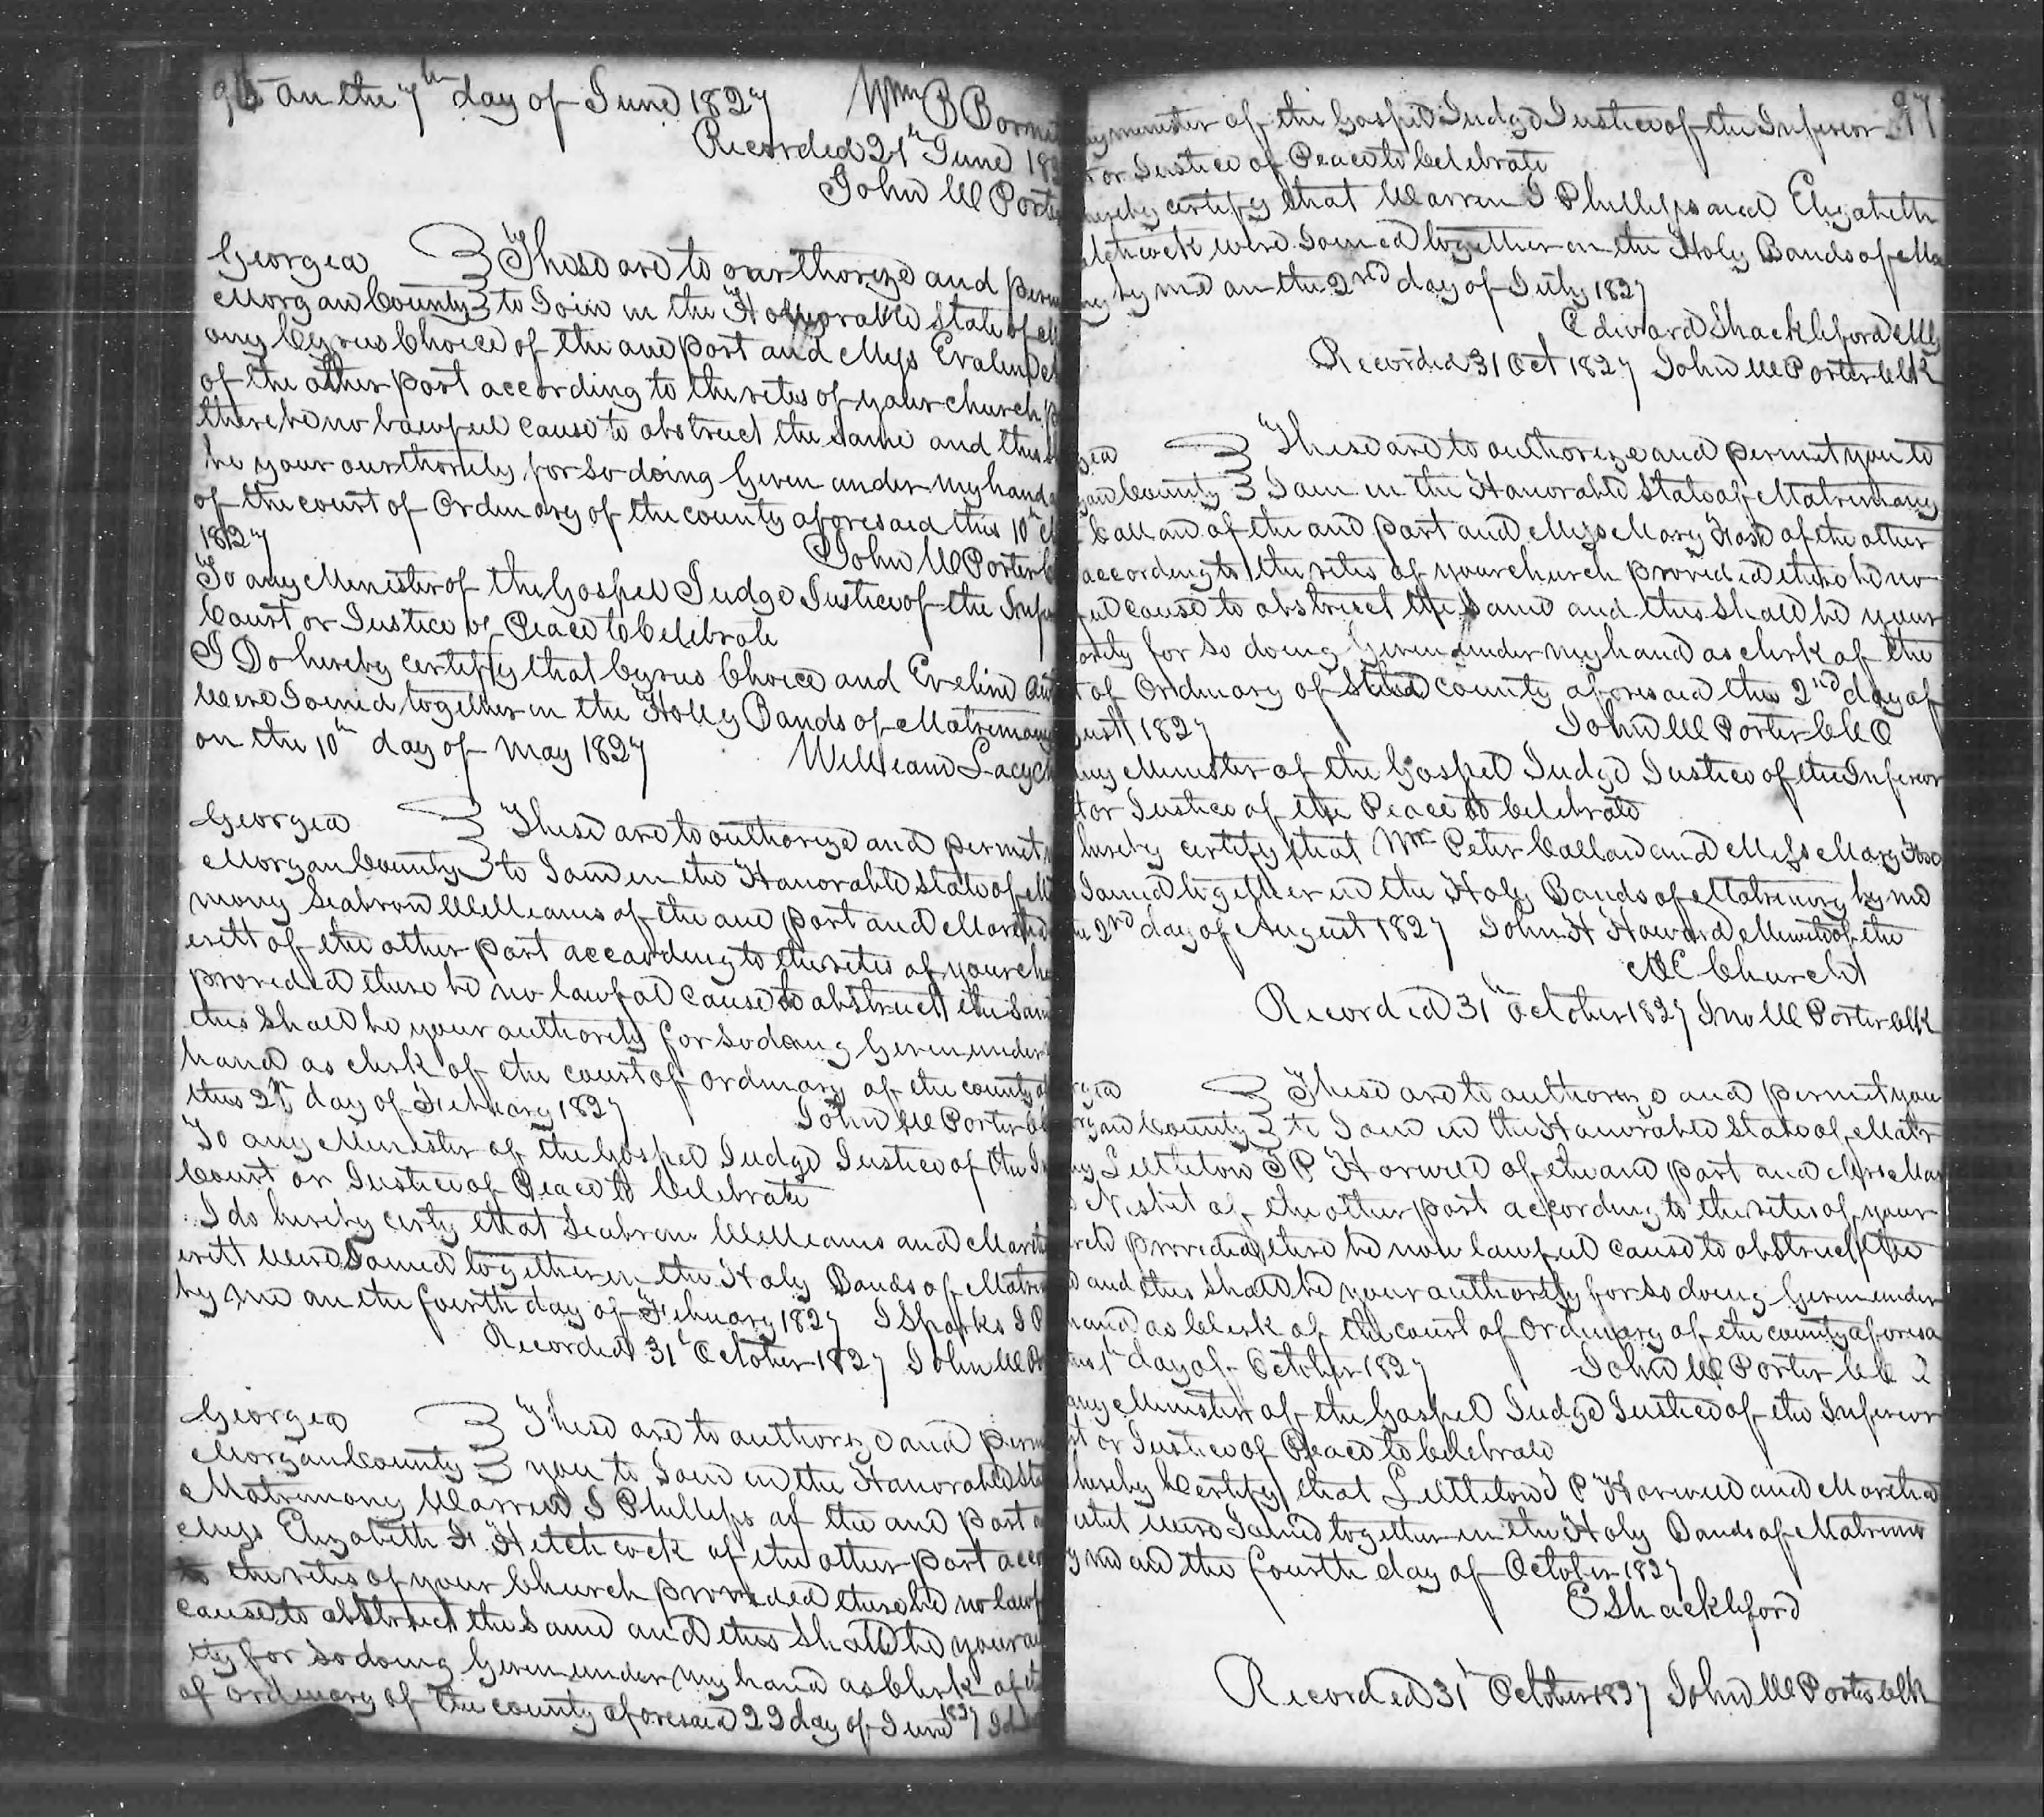 96 on the 7th day of June 1827 Wm B
Recorded 21th June 182
John W Porter
Georgia These are to ourthorize and perm
Morgan County to Join in the Honorable State of M
ony Cyrus Choice of the one part and Miss Evalin
of the other part according to the rites of your church p
there be no lawfull cause to obstruct the same and this
be your ourthority for so doing Given under my hand
of the court of Ordinary of the county aforesaid this 10th
1827 John W Porter
To any Minister of the Gospel Judge Justice of the Infe
Court or Justice of Peace to Celebrate
I Do hereby certify that Cyrus Choice and Eveline
Were Joined together in the Holly Bands of Matrimony
on the 10th day of May 1827 William Lacy
Georgia These are to authorize and permit
Morgan County to Join in the Honorable State of M
mony Seabron Williams of the one part and Martha
eritt of the other part according to the rites of your ch
provided there be no lawful cause to obstruct the same
this shall be your authority for so doing Given under
hand as clerk of the court of ordinary of the county
this 2n day of February 1827 John W Porter
To any Minister of the Gospel Judge Justice of the In
Court or Justice of Peace to Celebrate
I do hereby certy that Seabron Williams and Marth
eritt Were Joined together in the Holy Bands of Matrim
by me on the fourth day of February 1827 J Sparks J P
Recorded 31t October 1827 John W Po
Georgia These are to authorize and perm
Morgan County you to Join in the Honorable Sta
Matrimony Warren J Phillips of the one part
Miss Elizabeth H Hitchcock of the other part acco
to the rites of your Church provided there be no lawf
cause to obstruct the same and this shall be your au
ity for so doing Given under my hand as Clerk of th
of ordinary of the county aforesaid 22 day of June 1827
ny minister of the Gospel Judge Justice of the Inferior 97
t or Justice of Peace to Celebrate
hereby certify that Warren J Phillips and Elizabeth
itchcock were Joined together in the Holy Bands of Ma
ny by me on the 2nd day of July 1827
Edward Shackleford MG
Recorded 31 Oct 1827 John W Porter Clk
gia These are to authorize and permit you to
gan County Join in the Honorable State of Matrimony
Calland of the one part and Miss Mary of the other
according to the rites of your church provided there be no
ful cause to obstruct the same and this shall be your
ority for so doing Given under my hand as clerk of the
t of Ordinary of county aforesaid this 2nd day of
ust 1827 John W Porter C C O
any Minister of the Gospel Judge Justice of the Inferior
t or Justice of the Peace to Celebrate
hereby certify that Mr Peter Calland and Miss Mary
Joined together in the Holy Bands of Matrimony by me
2nd day of August 1827 John H Howard Minister of the
M E Church
Recorded 31t October 1827 Jno W Porter Clk
rgia These are to authorize and permit you
rgan County to Join in the Honorable State of Matr
ny Littleton P Harwell of the one part and Miss Mar
Nisbit of the other part according to the rites of your
rch provided there be now lawful cause to obstruct the
and this shall be your authority for so doing Given under
hand as Clerk of the court of Ordinary of the county aforesa
this 1t day of October 1827 John W Porter
any Minister of the Gospel Judge Justice of the Inferior
rt or Justice of Peace to Celebrate
hereby Certify that Littleton P Harwell and Martha
were Joined together in the Holy Bands of Matrimo
y me on the fourth day of October 1827
E Shackleford
Recorded 31t October 1827 John W Porter Clk